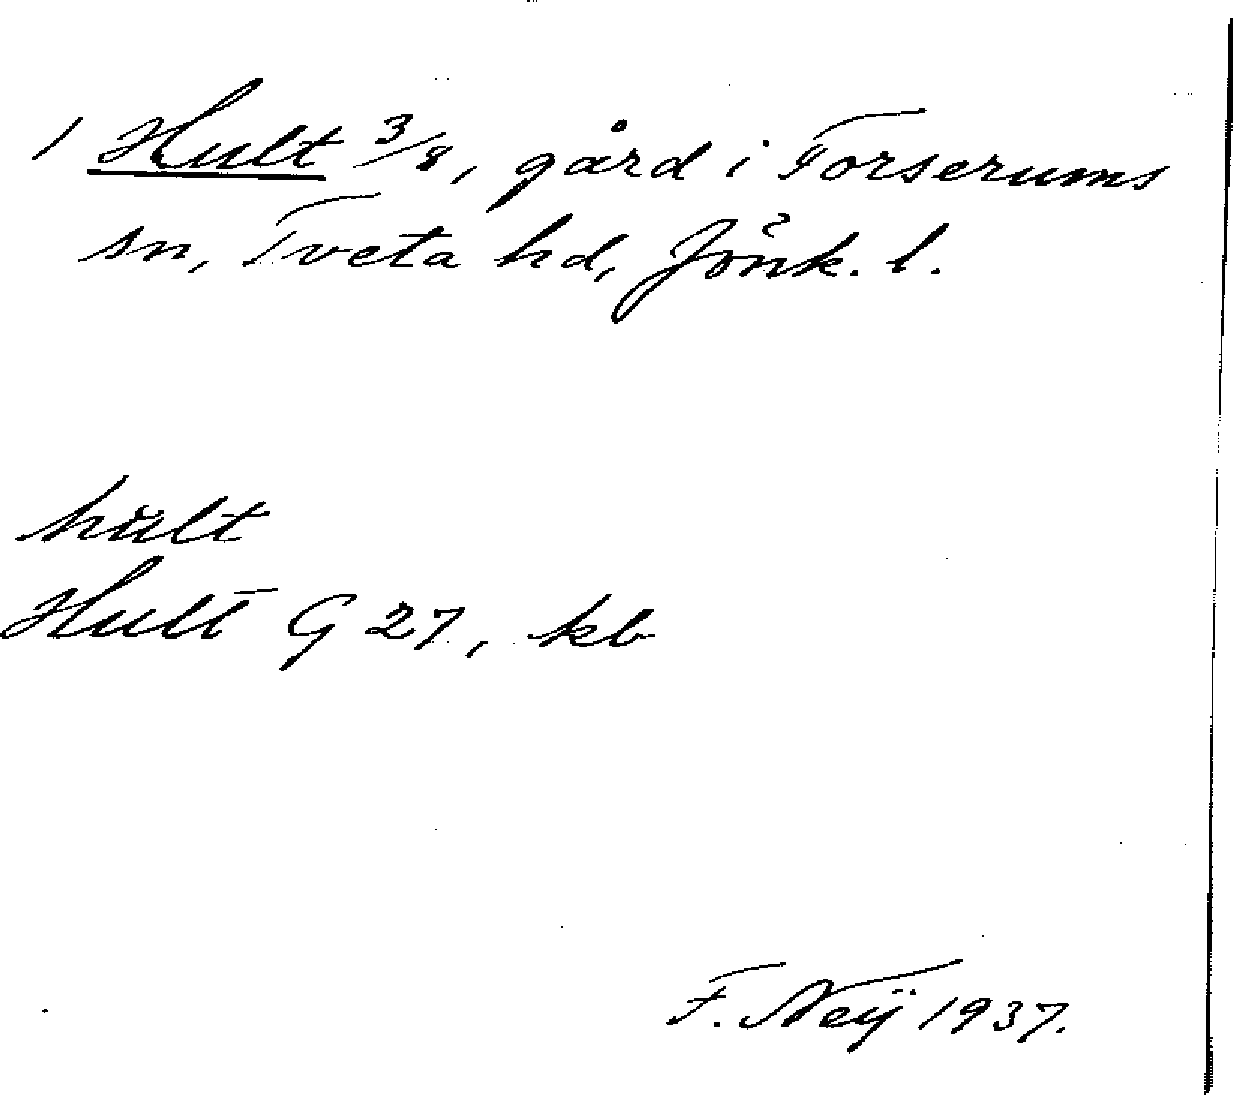 1 Hult 3/8, gård i Forserums
sn, Tveta hd, Jönk. l.
hult
Hult G 27, kb
F. Neÿ 1937.